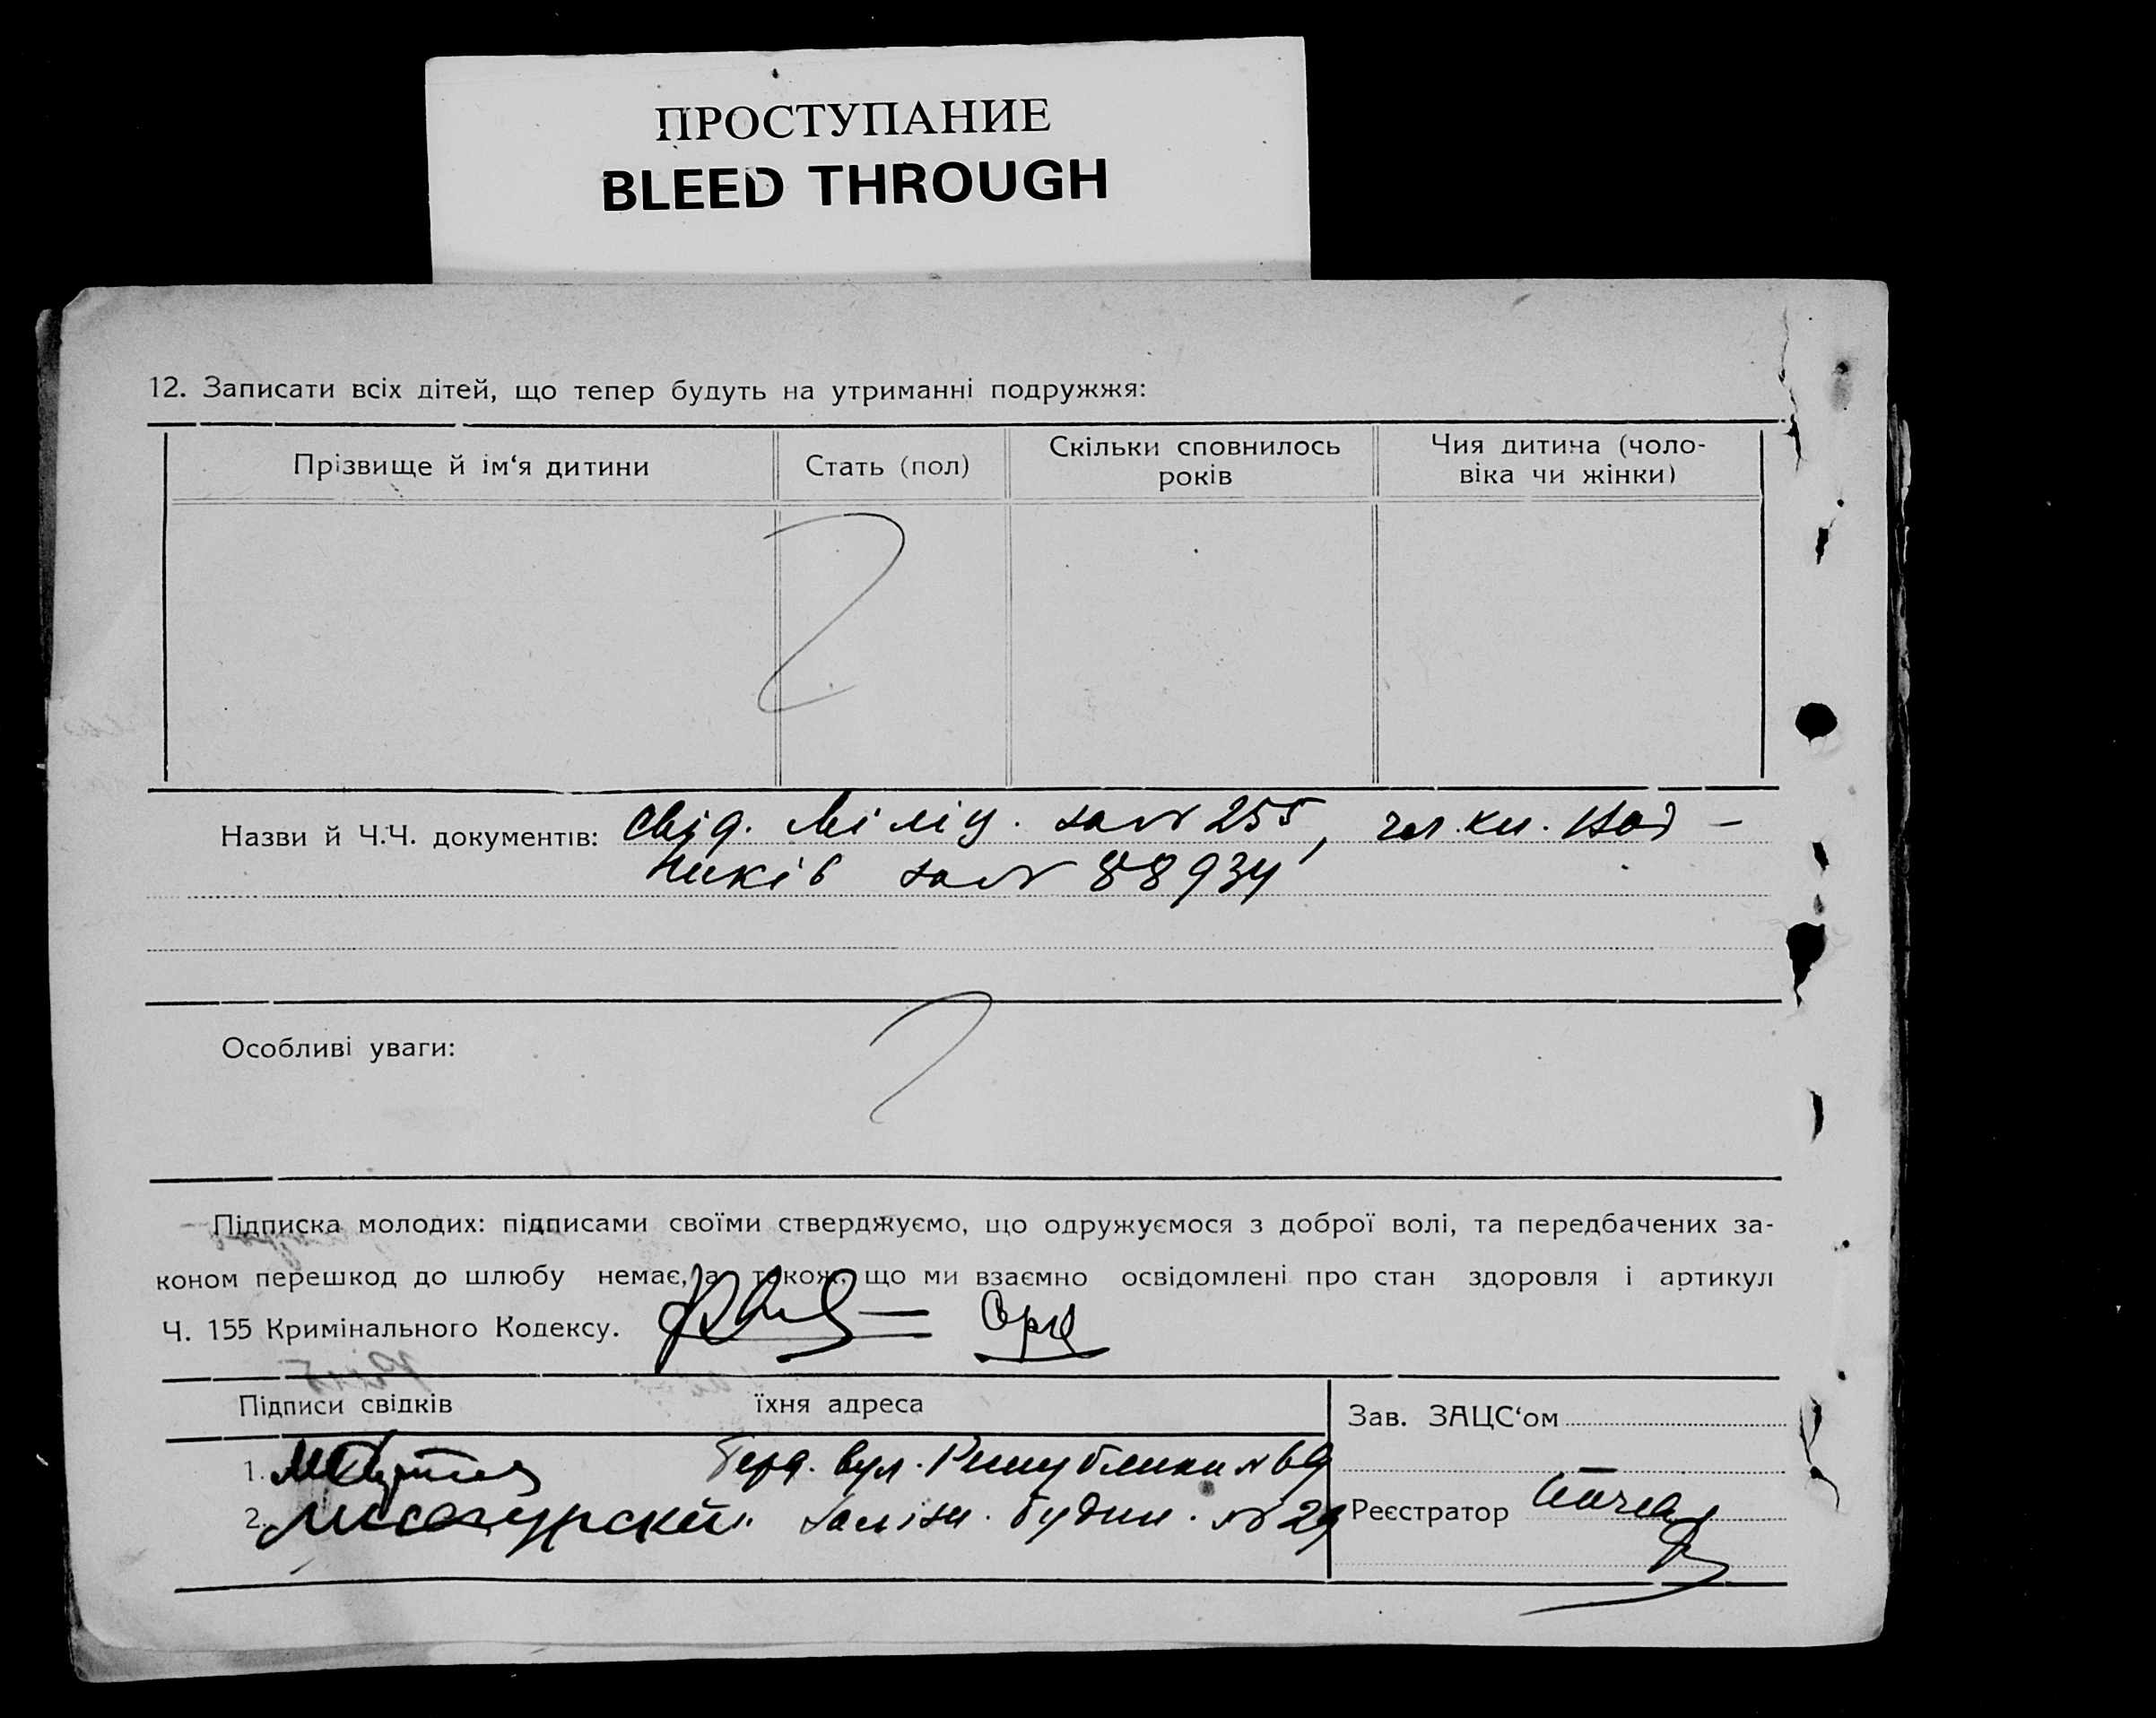 ПРОСТУПАНИЕ
BLEED THROUGH
12. Записати всіх дітей, що тепер будуть на утриманні подружжя:
Прізвище й ім‘я дитини Стать (пол) Скільки сповнилось років Чия дитина (чоловіка чи жінки)
Назви й Ч.Ч. документів: свід. міліц. за № 255, чл. кн.
за № 88934
Особливі уваги:
Підписка молодих: підписами своїми стверджуємо, що одружуємося з доброї волі, та передбачених за-
коном перешкод до шлюбу немає, а також, що ми взаємно освідомлені про стан здоровля і артикул
Ч. 155 Кримінального Кодексу.
Підписи свідків їхня адреса
Зав. ЗАЦС‘ом
1. вул. Республики № 69
2. будин. № 29
Реєстратор